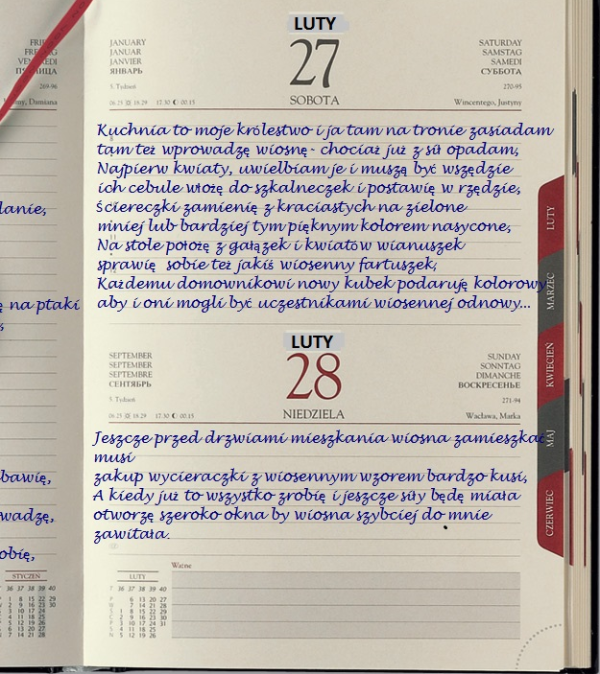 LUTY
27
SOBOTA
JANUARY
JANUAR
JANVIER
ЯНВАРЬ
SATURDAY
SAMSTAG
SAMEDI
СУББОТА
270-95
Wincentego, Justyny
269-96
Kuchnia to moje królestwo i ja tam na tronie zasiadam
tam też wprowadzę wiosnę - chociaż już z sił opadam,
Najpierw kwiaty, uwielbiam je i muszą być wszędzie
ich cebule włożę do szkalneczek i postawię w rzędzie,
Ściereczki zamienię z kraciastych na zielone
mniej lub bardziej tym pięknym kolorem nasycone,
Na stole położę z gałązek i kwiatów wianuszek
sprawię sobie też jakiś wiosenny fartuszek,
Każdemu domownikowi nowy kubek podaruję kolorowy
aby i oni mogli być uczestnikami wiosennej odnowy...
lanie,
ę na ptaki
LUTY
28
NIEDZIELA
SEPTEMBER
SEPTEMBER
SEPTEMBRE
СЕНТЯБРЬ
SUNDAY
SONNTAG
DIMANCHE
ВОСКРЕСЕНЬЕ
271-94
Wacława, Marka
Jeszcze przed drzwiami mieszkania wiosna zamieszkać
musi
zakup wycieraczki z wiosennym wzorem bardzo kusi,
A kiedy już to wszystko zrobię i jeszcze siły będę miała
otworzę szeroko okna by wiosna szybciej do mnie
zawitała.
bawię,
wadzę,
obię,
STYCZEŃ
LUTY
LUTY
MARZEC
KWIECIEŃ
MAJ
CZERWIEC